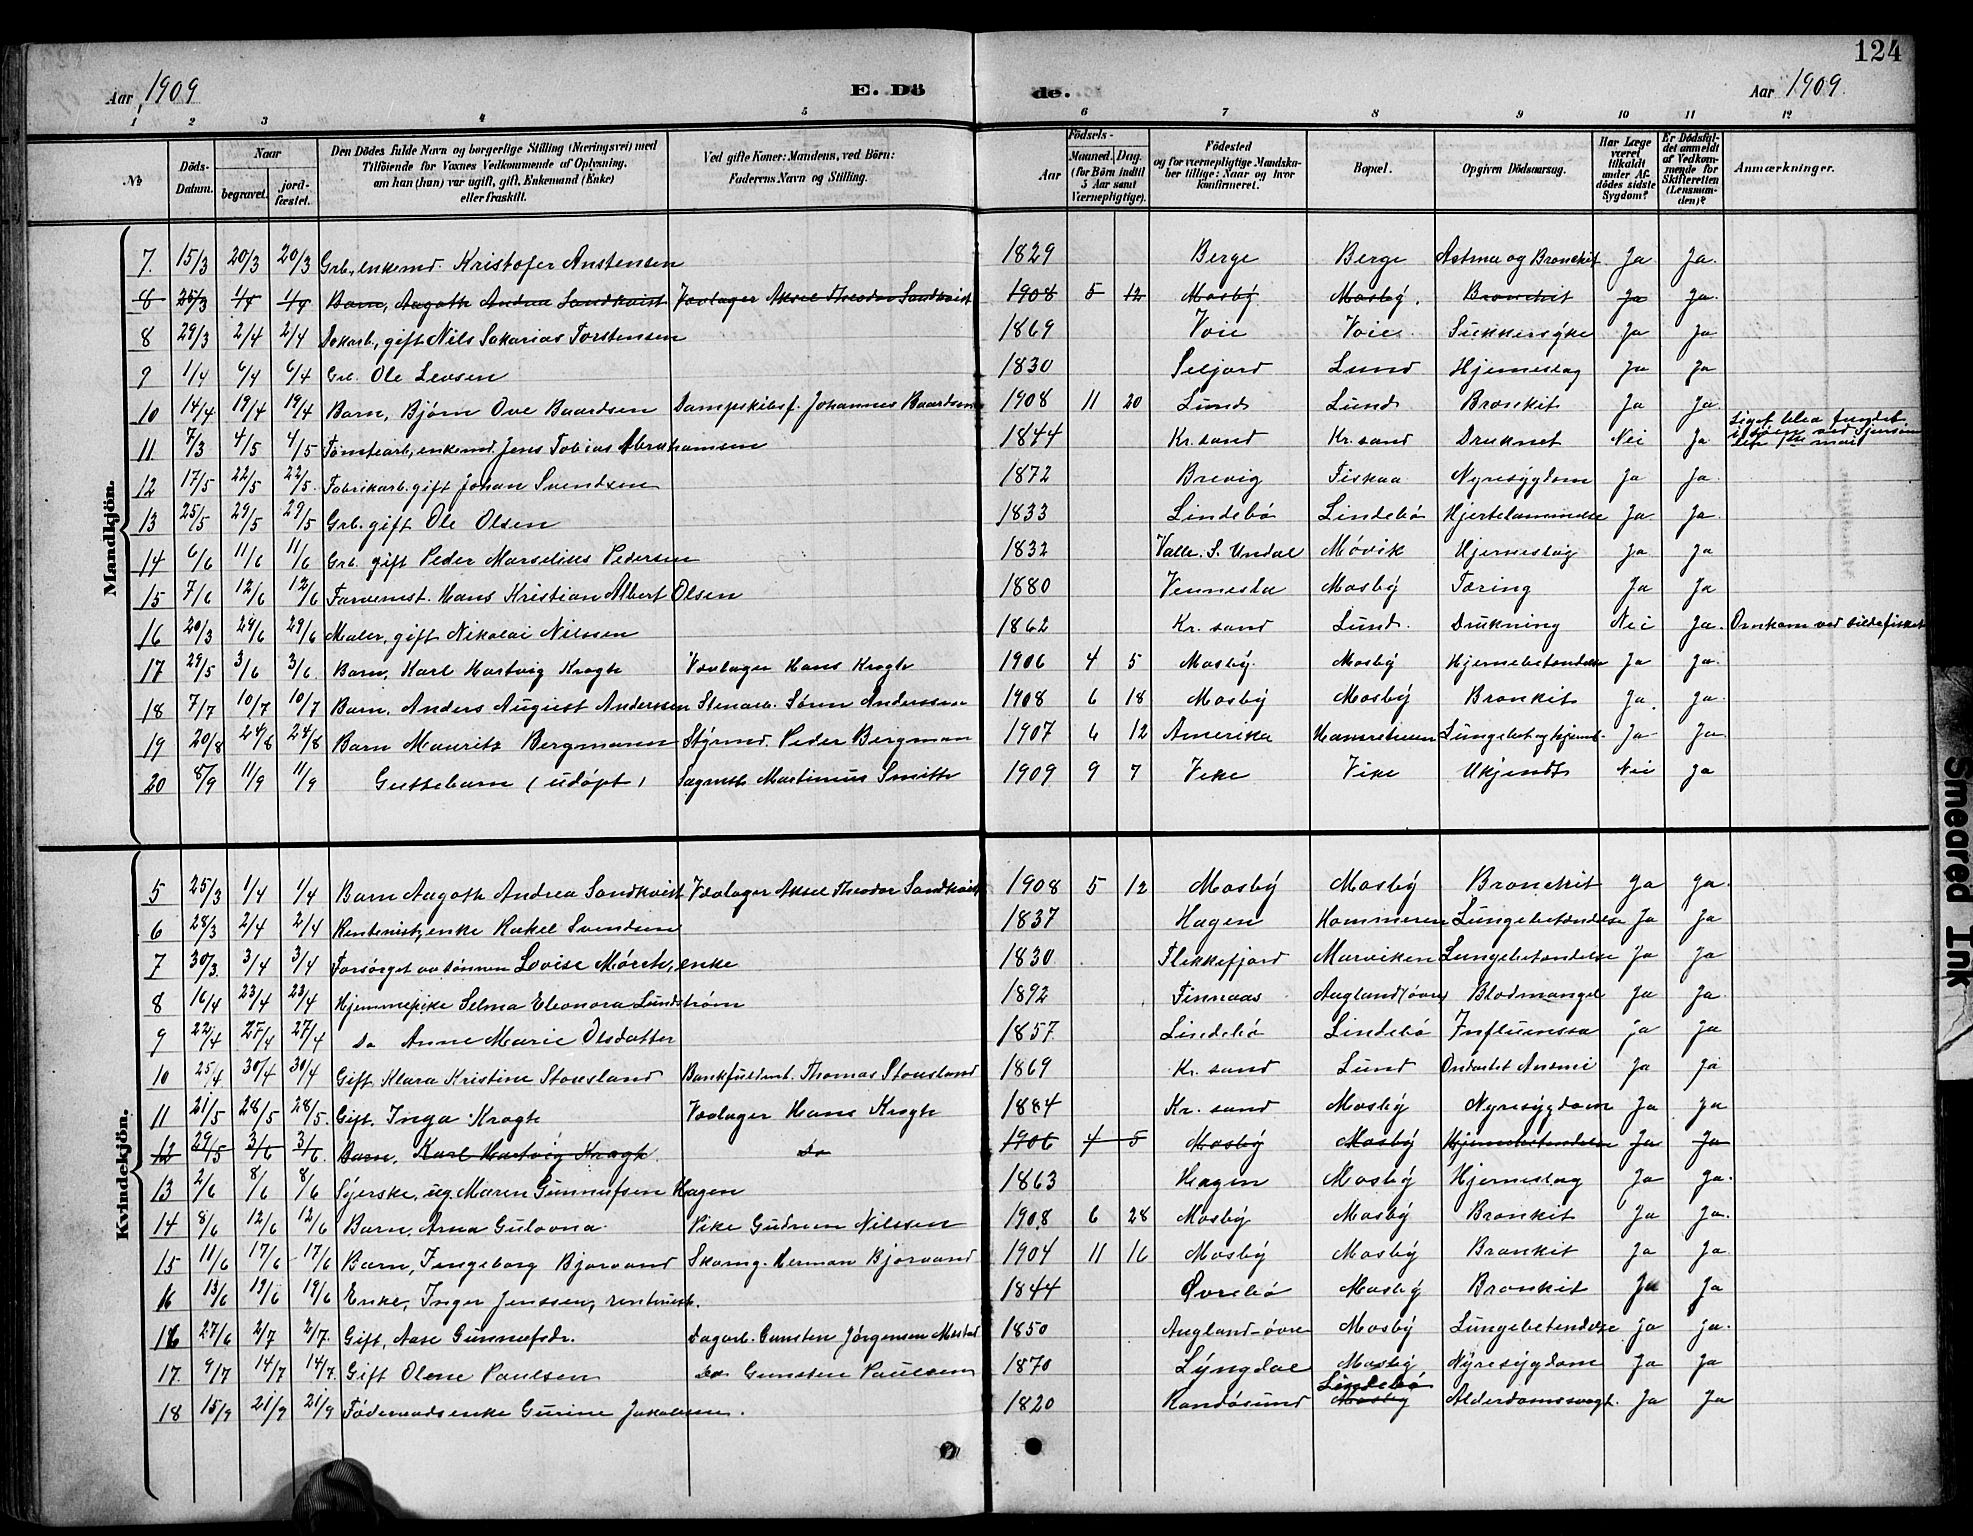 124
Aar 1909 E. Dö de. Aar 1909.
1 2 3 4 5 6 7 8 9 10 11 12
№ Döds-Datum. Naar begravet. jord-fæstet. Den Dödes fulde Navn og borgerlige Stilling (Næringsvei) med Tilföiende for Voxnes Vedkommende af Oplysning, om han (hun) var ugift, gift, Enkemand (Enke) eller fraskilt. Ved gifte Koner: Mandens, ved Börn: Faderens Navn og Stilling. Födsels- Aar Maaned. Dag. (for Börn indtil 5 Aar samt Værnepligtige). Födested og for værnepligtige Mandska-ber tillige: Naar og hvor konfirmeret. Bopæl. Opgiven Dödsaarsag. Har Læge været tilkaldt under Af-dödes sidste Sygdom? Er Dödsfal-det anmeldt af Vedkom-mende for Skifteretten (Lensman-den)? Anmærkninger.
Mandkjön.
7. 15/3 20/3 20/3 Grb., enkemd. Kristofer Anstensen 1829 Berge Berge Astma og Bronchit Ja Ja.
8 25/3 1/4 1/4 Barn, Aagoth Andrea Sandkvist Vævlager Aksel Theodor Sandkvist 1908 5 12 Mosby Mosby. Bronchit Ja Ja.
8 29/3 2/4 2/4 gift Nils Sakarias Torstensen 1869 Voie Voie Sukkersyke Ja Ja
9 1/4 6/4 6/4 Grb. Ole Levsen 1830 Seljord Lund Hjerneslag Ja Ja
10 14/4 19/4 19/4 Barn, Bjørn Ove Baardsen Dampskibsf. Johannes Baardsen 1908 11 20 Lund Lund Bronkit Ja Ja
11 7/3 4/5 4/5 Tomtearb., enkemd. Jens Tobias Abrahamsen 1844 Kr. sand Kr. sand Druknet Nei Ja Liget blev fundet
12 17/5 22/5 22/5 Fabrikarb. gift Johan Svendsen 1872 Brevig Fiskaa Nyresygdom Ja Ja.
13 25/5 29/5 29/5 Grb. gift Ole Olsen 1833 Lindebø Lindebø Hjertelammelse Ja Ja.
14 6/6 11/6 11/6 Grb. gift Peder Marselius Pedersen 1832 Valle. S. Undal Møvik Hjerneslag Ja Ja
15 7/6 12/6 12/6 Farvemst. Hans Kristian Albert Olsen 1880 Vennesla Mosby Tæring Ja Ja
16 20/3 29/6 29/6 Maler, gift Nikolai Nilssen 1862 Kr. sand Lund. Drukning Nei Ja. Omkom ved sildefisket
17 29/5 3/6 3/6 Barn, Karl Hartvig Krogh Vævlager Hans Krogh 1906 4 5 Mosby. Mosby Hjernebetændelse Ja Ja.
18 7/7 10/7 10/7 Barn, Anders August Andersen Stenarb. Søren Anderssen 1908 6 18 Mosby Mosby Bronkit Ja. Ja.
19 20/8 24/8 24/8 Barn Mauritz Bergmann Styrmd. Peder Bergman 1907 6 12 Amerika Lungebet og hjerneb. Ja Ja.
20 8/9 11/9 11/9 Guttebarn (udøpt) Sagmst. Martinius Smith 1909 9 7 Vike Vike Ukjendt Nei Ja
Kvindekjön.
5 25/3 1/4 1/4 Barn Aagoth Andrea Sandkvist Vævlager Aksel Theodor Sandkvist 1908 5 12 Mosby Mosby Bronchit Ja Ja.
6 28/3 2/4 2/4 Rentenist, enke Rakel Svendsen 1837 Hagen Hommeren Lungebetændelse Ja Ja
7 30/3 3/4 3/4 Forsørget av sønnen Lovise Mørch, enke 1830 Flekkefjord Marviken Lungebetændelse Ja Ja
8 16/4 23/4 23/4 Hjemmepike Selma Eleonora Lundstrøm 1892 Finnaas Augland (øvre) Blodmangel Ja Ja.
9 22/4 27/4 27/4 Do Anne Marie Olsdatter 1857 Lindebø Lindebø Influensa Ja Ja
10 25/4 30/4 30/4 Gift Klara Kristine Stousland Bankfuldm. Thomas Stousland 1869 Kr. sand Lund Ondartet Anemi Ja Ja
11 21/5 28/5 28/5. Gift. Inga Krogh Vævlager Hans Krogh 1884 Kr. sand Mosby Nyresygdom Ja Ja
12 29/5 3/6 3/6. Barn, Karl Hartvig Krogh. Do 1906 4 5 Mosby Mosby Hjernebetændelse Ja Ja
13 2/6 8/6 8/6 Syerske, ug. Maren Gunnufsen Hagen 1863 Hagen Mosby Hjerneslag Ja Ja.
14 8/6 12/6 12/6 Barn, Arna Gulovna. Pike Gudrun Nilssen 1908 6 28 Mosby Mosby Bronkit Ja Ja.
15 11/6 17/6 17/6 Barn, Ingeborg Bjorvand Skomg. Herman Bjorvand 1904 11 16 Mosby Mosby Bronkit Ja Ja
16 13/6 19/6 19/6 Enke, Inger Jenssen, rentenist. 1844 Øvrebø Mosby Bronkit Ja Ja
16 27/6 2/7 2/7. Gift, Aase Gunnufsdr. Dagarb. Gunsten Jörgensen 1850 Augland-øvre Mosby Lungebetændelse Ja Ja.
17. 9/7 14/7 14/7. Gift Olene Paulsen Do. Gunsten Paulsen 1870 Lyngdal Mosby Nyresygdom Ja Ja
18 15/9 21/9 21/9 Föderaadsenke Gurine Jakobsen. 1820 Randøsund Lindebø Mosby Alderdomssvagh. Ja Ja
Smeared Ink